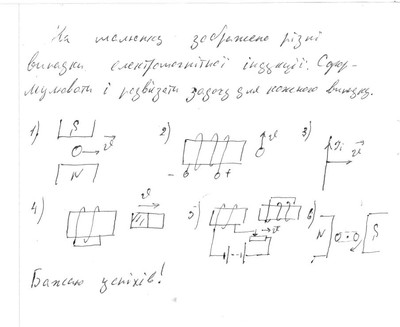 На малюнку зображено різні
випадки електромагнітної індукції. Сфор-
мулювати і розвязати задачу для кожного випадку.
1) S v N
2) - + v
3) I i v
4) v N
5) v
6) N S
Бажаю успіхів!